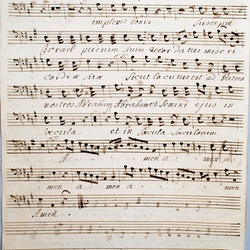 implevit bonis Suscepit
Israel puerum suum recordatus miseri
cordiæ suæ Sicut locutus est ad Patres
nostros Abraham Abraham et Semini ejus in
sæcula et in Sæcula Sæculorum
A men a men a
men a men a men
Amen